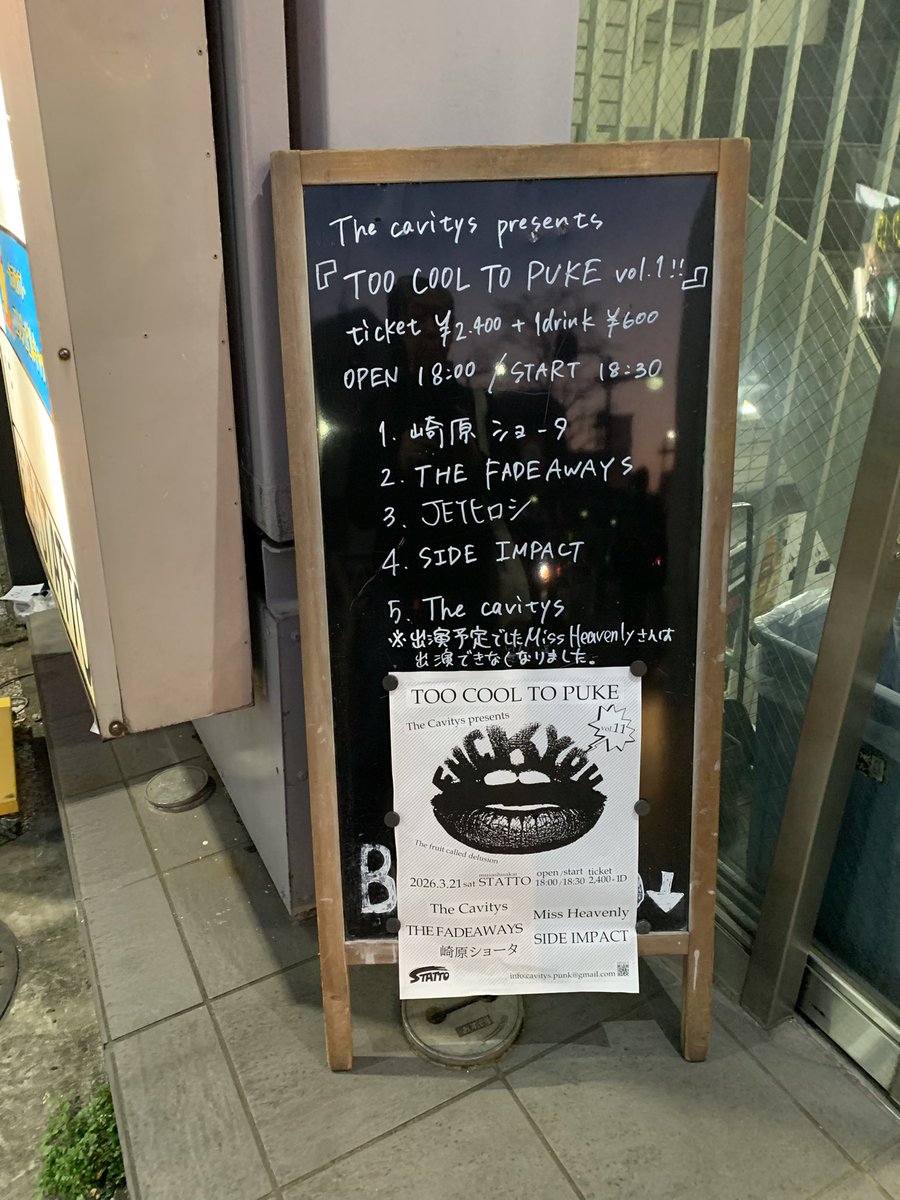 The cavitys presents
『TOO COOL TO PUKE vol.1!!』
ticket ¥2.400 + 1drink ¥600
OPEN 18:00 / START 18:30
1. 崎原 ショータ
2. THE FADEAWAYS
3. JETヒロシ
4. SIDE IMPACT
5. The cavitys
※出演予定でしたMiss Heavenlyさんは
出演できなくなりました。
TOO COOL TO PUKE
The Cavitys presents
vol.11
FUCK YOU
The fruit called delusion
2026.3.21 sat musashisakai STATTO open/start 18:00/18:30 ticket 2,400+1D
The Cavitys
Miss Heavenly
THE FADEAWAYS
SIDE IMPACT
崎原ショータ
STATTO
info.cavitys.punk@gmail.com
B